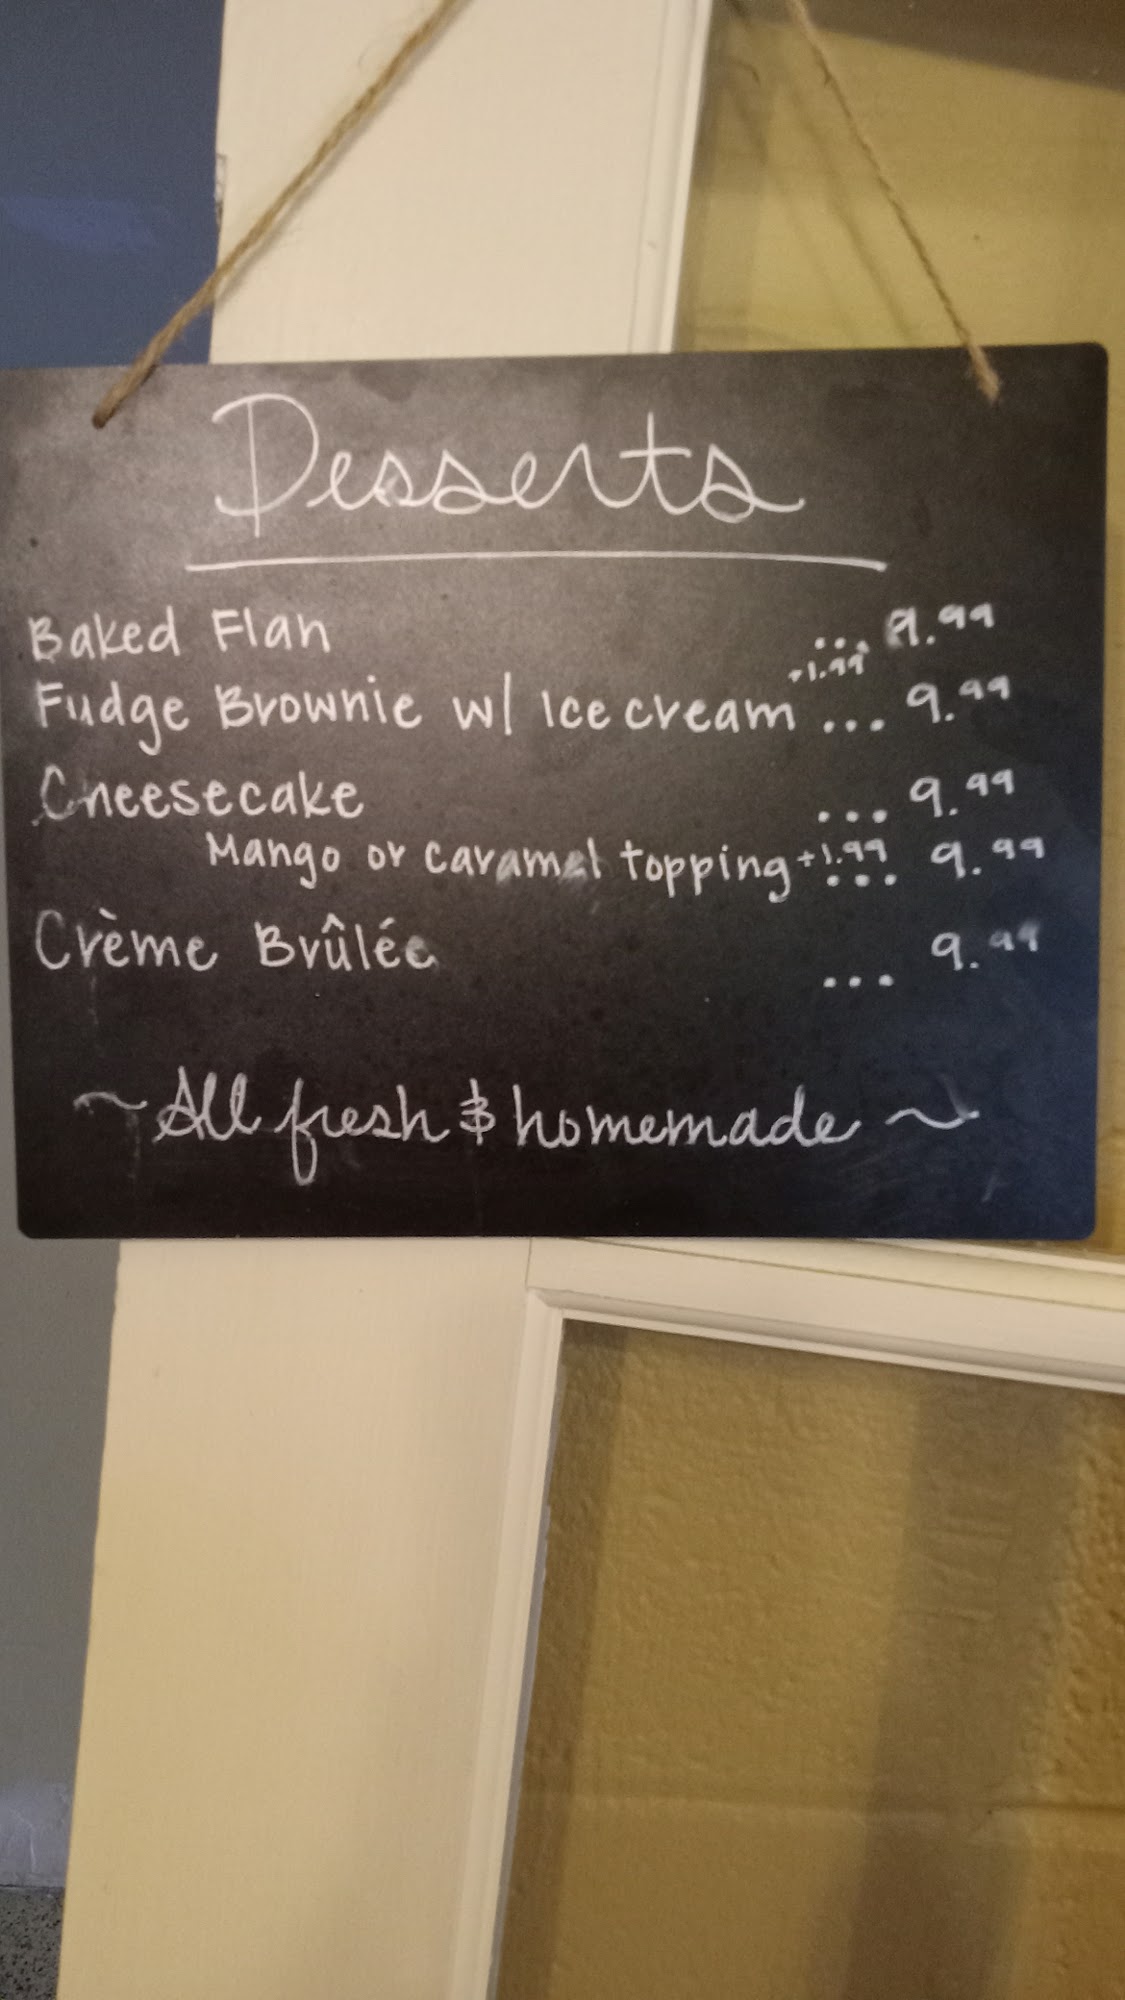 Desserts
Baked Flan ... 9.99
Fudge Brownie w/ Ice cream +1.99 ... 9.99
Cheesecake ... 9.99
Mango or caramel topping +1.99 ... 9.99
Crème Brûlée ... 9.99
~ All fresh & homemade ~